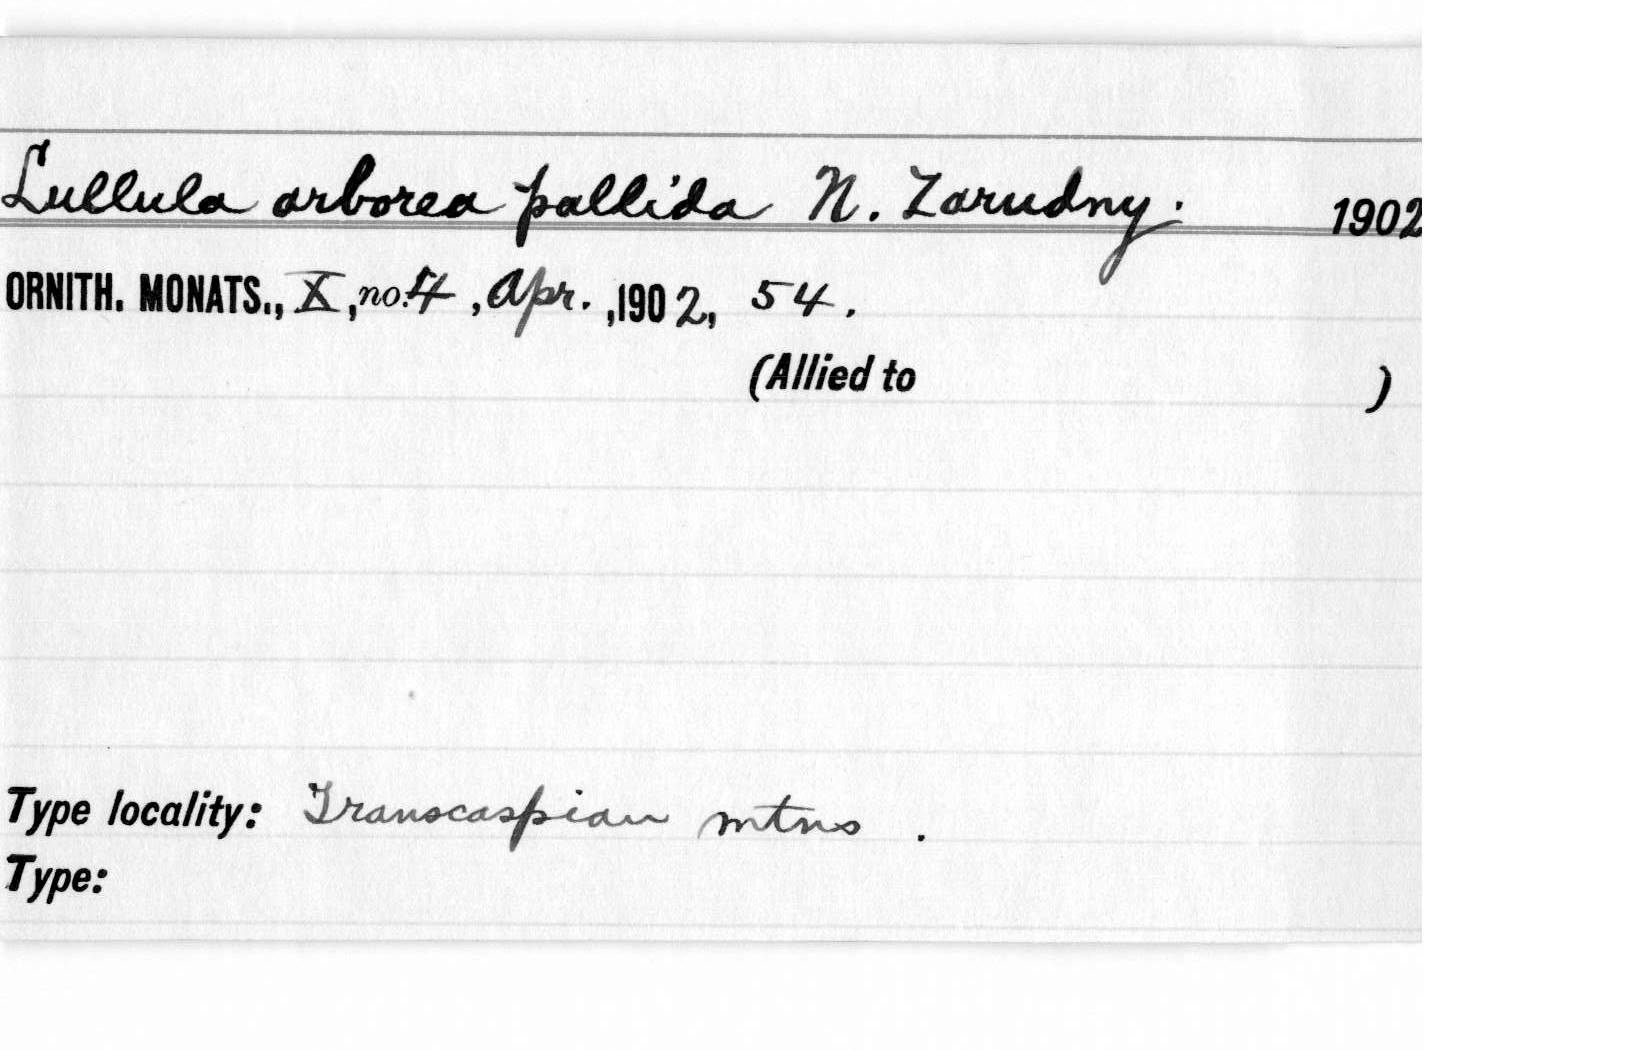 Lullula arborea pallida N. Zarudny. 1902
ORNITH. MONATS., X, no. 4, Apr., 1902, 54.
(Allied to )
Type locality: Transcaspian mtns.
Type: